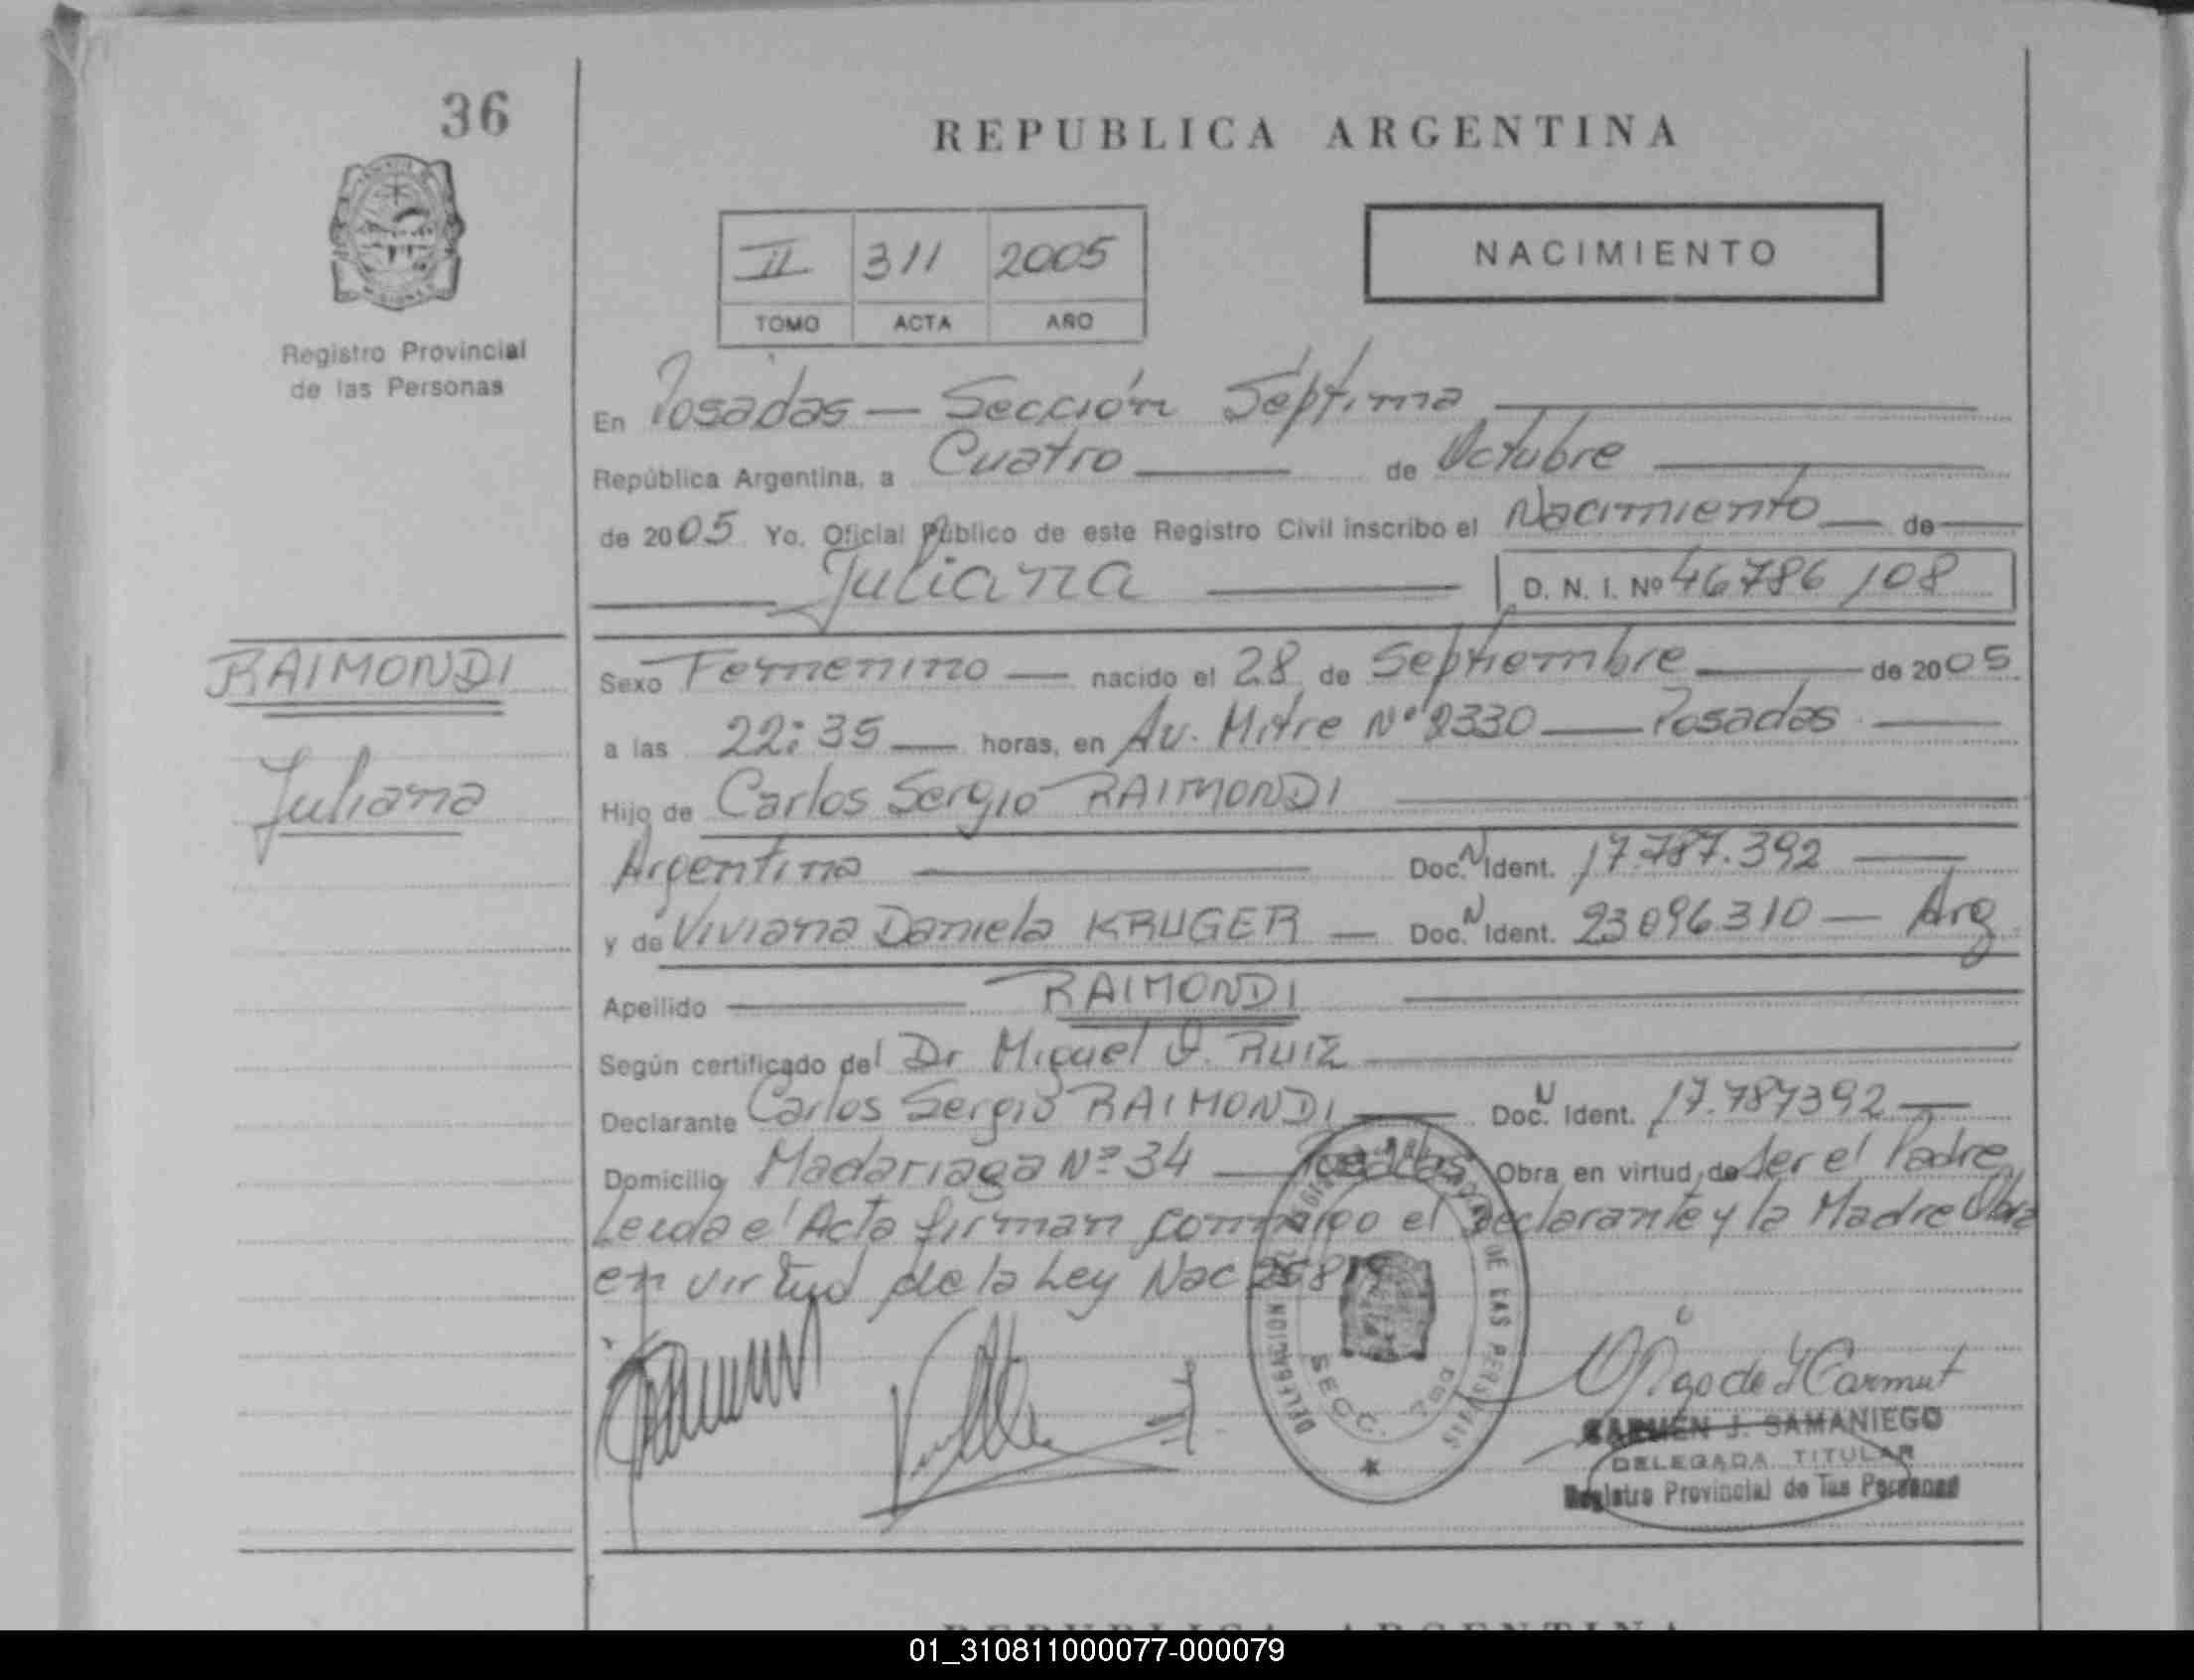 36
REPUBLICA ARGENTINA
II 311 2005
TOMO ACTA AÑO
NACIMIENTO
Registro Provincial
de las Personas
En Posadas — Sección Séptima
República Argentina, a Cuatro de Octubre
de 2005 Yo, Oficial Público de este Registro Civil inscribo el Nacimiento de
Juliana D. N. I. Nº 46786108
RAIMONDI
Juliana
Sexo Femenino nacido el 28 de Septiembre de 2005
a las 22:35 horas, en Av. Mitre Nº 2330 — Posadas
Hijo de Carlos Sergio RAIMONDI
Argentina Doc. N Ident. 17.787.392
y de Viviana Daniela KRUGER — Doc. N Ident. 23096310 — Arg
Apellido RAIMONDI
Según certificado del Dr Miguel RUIZ
Declarante Carlos Sergio RAIMONDI Doc. N Ident. 17.787392
Domicilio Madariaga Nº 34 — Posadas Obra en virtud de Ser el Padre
Leida el Acta firman conmigo el Declarante y la Madre Obra
en virtud de la Ley Nac
DELEGACION DE LAS PERSONAS
SECC.
CARMEN J. SAMANIEGO
DELEGADA TITULAR
Registro Provincial de las Personas
REPUBLICA ARGENTINA
01_310811000077-000079